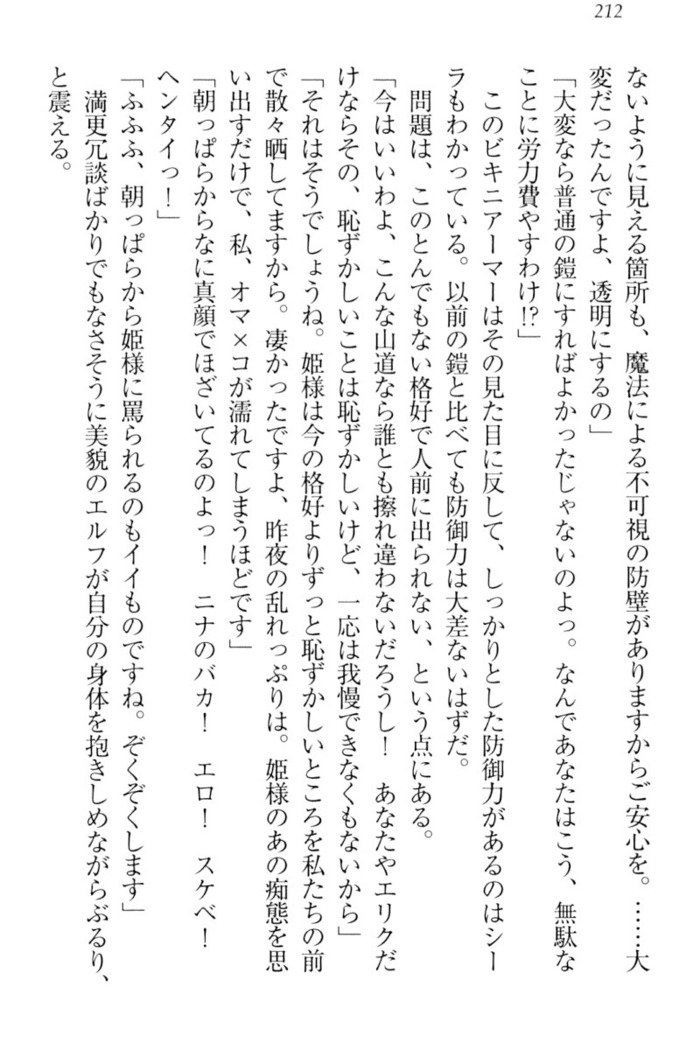 212
ないように見える箇所も、魔法による不可視の防壁がありますからご安心を。……大
変だったんですよ、透明にするの」
「大変なら普通の鎧にすればよかったじゃないのよっ。なんであなたはこう、無駄な
ことに労力費やすわけ!?」
このビキニアーマーはその見た目に反して、しっかりとした防御力があるのはシー
ラもわかっている。以前の鎧と比べても防御力は大差ないはずだ。
問題は、このとんでもない格好で人前に出られない、という点にある。
「今はいいわよ、こんな山道なら誰とも擦れ違わないだろうし！　あなたやエリクだ
けならその、恥ずかしいことは恥ずかしいけど、一応は我慢できなくもないから」
「それはそうでしょうね。姫様は今の格好よりずっと恥ずかしいところを私たちの前
で散々晒してますから。凄かったですよ、昨夜の乱れっぷりは。姫様のあの痴態を思
い出すだけで、私、オマ×コが濡れてしまうほどです」
「朝っぱらからなに真顔でほざいてるのよっ！　ニナのバカ！　エロ！　スケベ！
ヘンタイっ！」
「ふふふ、朝っぱらから姫様に罵られるのもイイものですね。ぞくぞくします」
満更冗談ばかりでもなさそうに美貌のエルフが自分の身体を抱きしめながらぶるり、
と震える。